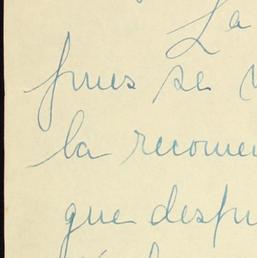 La
pues se
la recomen
que despu